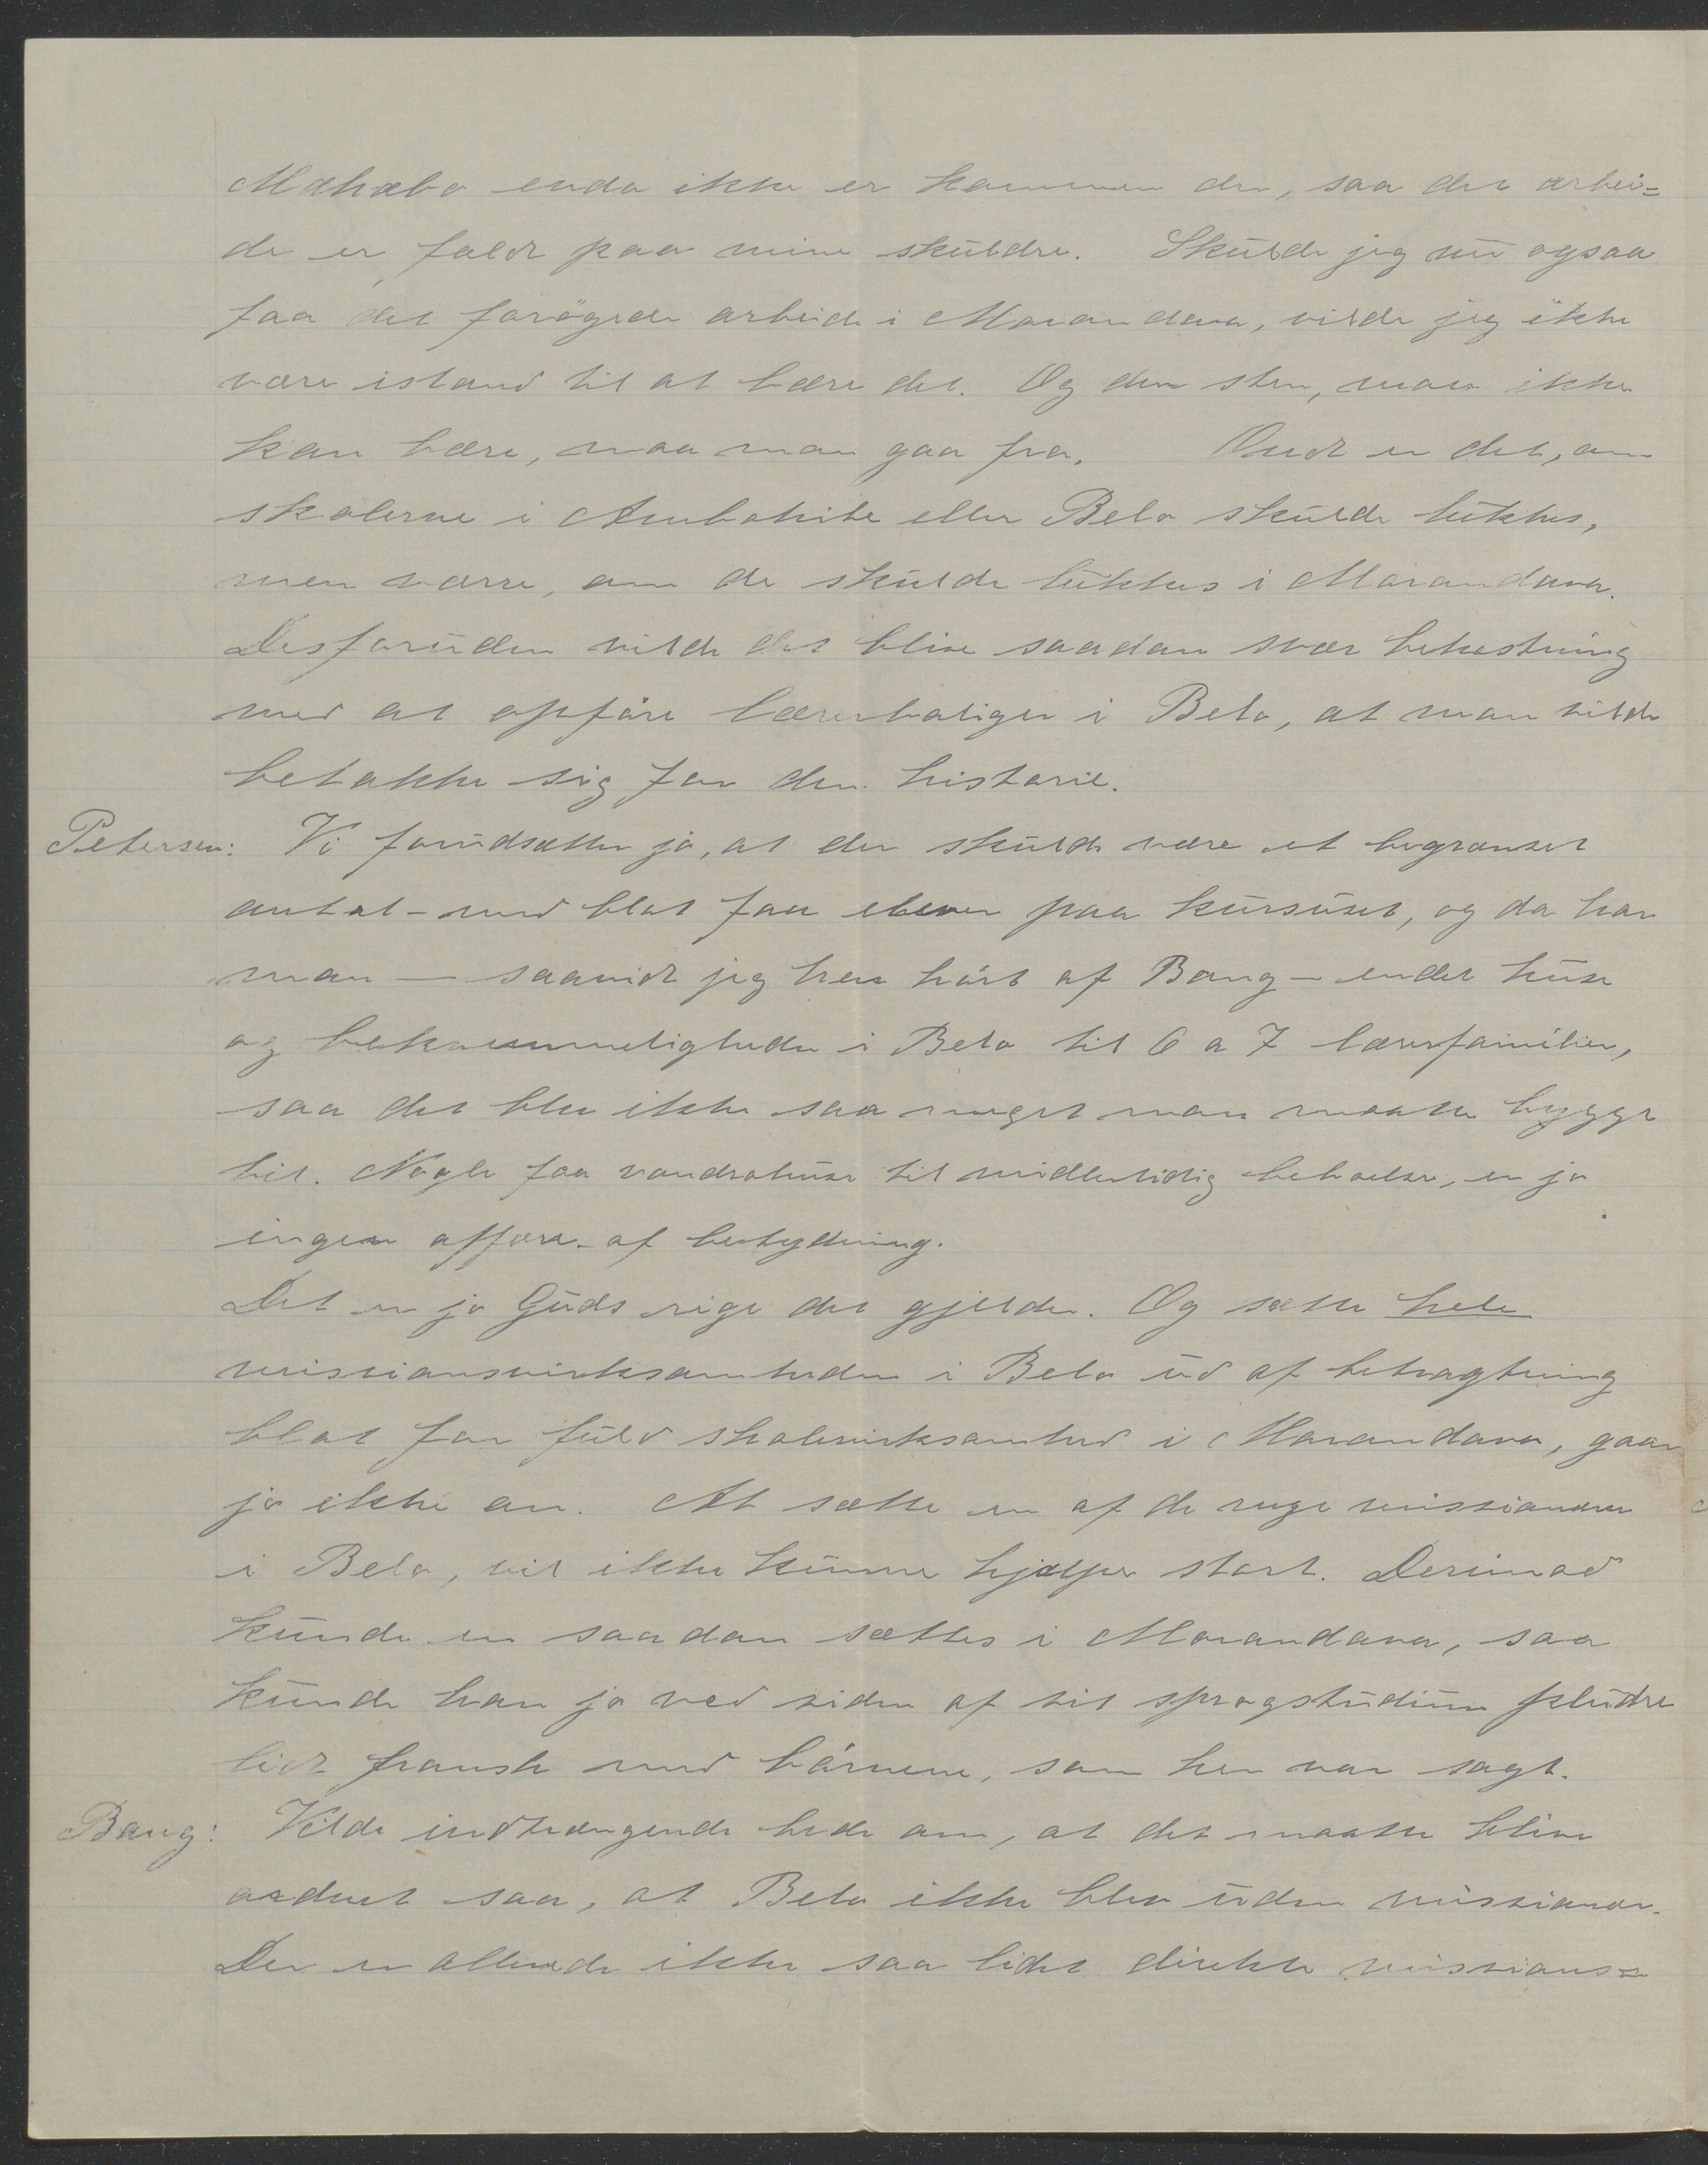 Mahabo enda ikke er kommen der, saa det arbei=
de er faldt paa mine skuldre. Skulde jeg nu ogsaa
faa det forøgede arbeide i Morondava, vilde jeg ikke
være istand til at bære det. Og den sten, man ikke
kan bære, maa man gaa fra. Ondt er det, om
skolerne i Ambohibe eller Belo skulde lukkes,
men værre, om de skulde lukkes i Morondava.
Desforuden vilde det blive saadan svær bekostning
med at opføre lærerboliger i Belo, at man vilde
betakke sig for den historie.
Petersen: Vi forudsætter jo, at der skulde være et begrænset
antal - med blot faa elever paa kursuset, og da har
man — saavidt jeg har hørt af Bang — endel huse
og bekvemmeligheder i Belo til 6 a 7 lærerfamilier,
saa det blev ikke saa meget man maatte bygge
til. Nogle faa vondrohuse til midlertidig behoelse, er jo
ingen affære af betydning.
Det er jo Guds rige det gjelder. Og sætte hele
missionsvirksomheden i Belo ud af betragtning
blot for fuld skolevirksomhed i Morondava, gaar
jo ikke an. At sætte en af de unge missionærer
i Belo, vil ikke kunne hjælpe stort. Derimod
kunde en saadan sættes i Morondava, saa
kunde han jo ved siden af sit sprogstudium pludre
lidt fransk med børnene, som her var sagt.
Bang: Vilde indtrængende bede om, at det maatte blive
ordnet saa, at Belo ikke blev uden missionær.
Der er allerede ikke saa lidet direkte missions=